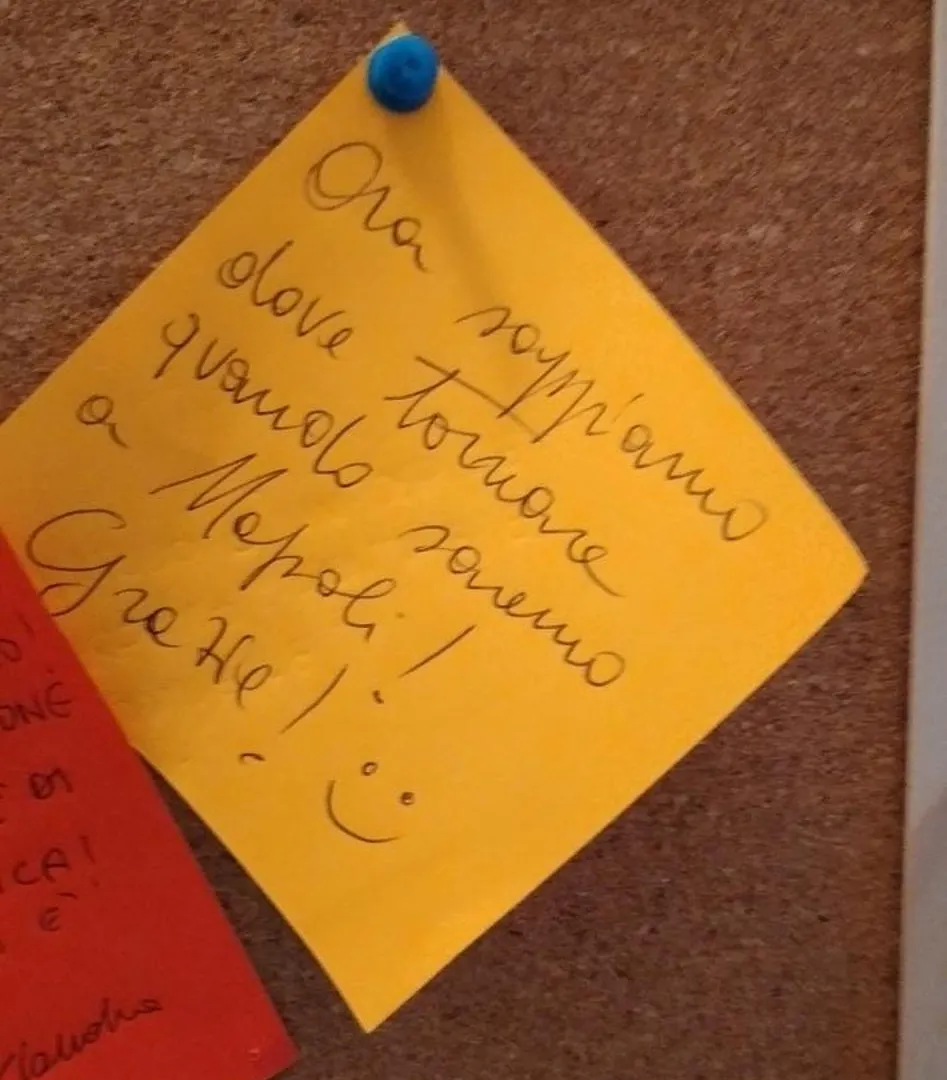 Ora sappiamo
dove tornare
quando saremo
a Napoli!
Grazie! :)
ONE
DI
ICA!
È
Claudia